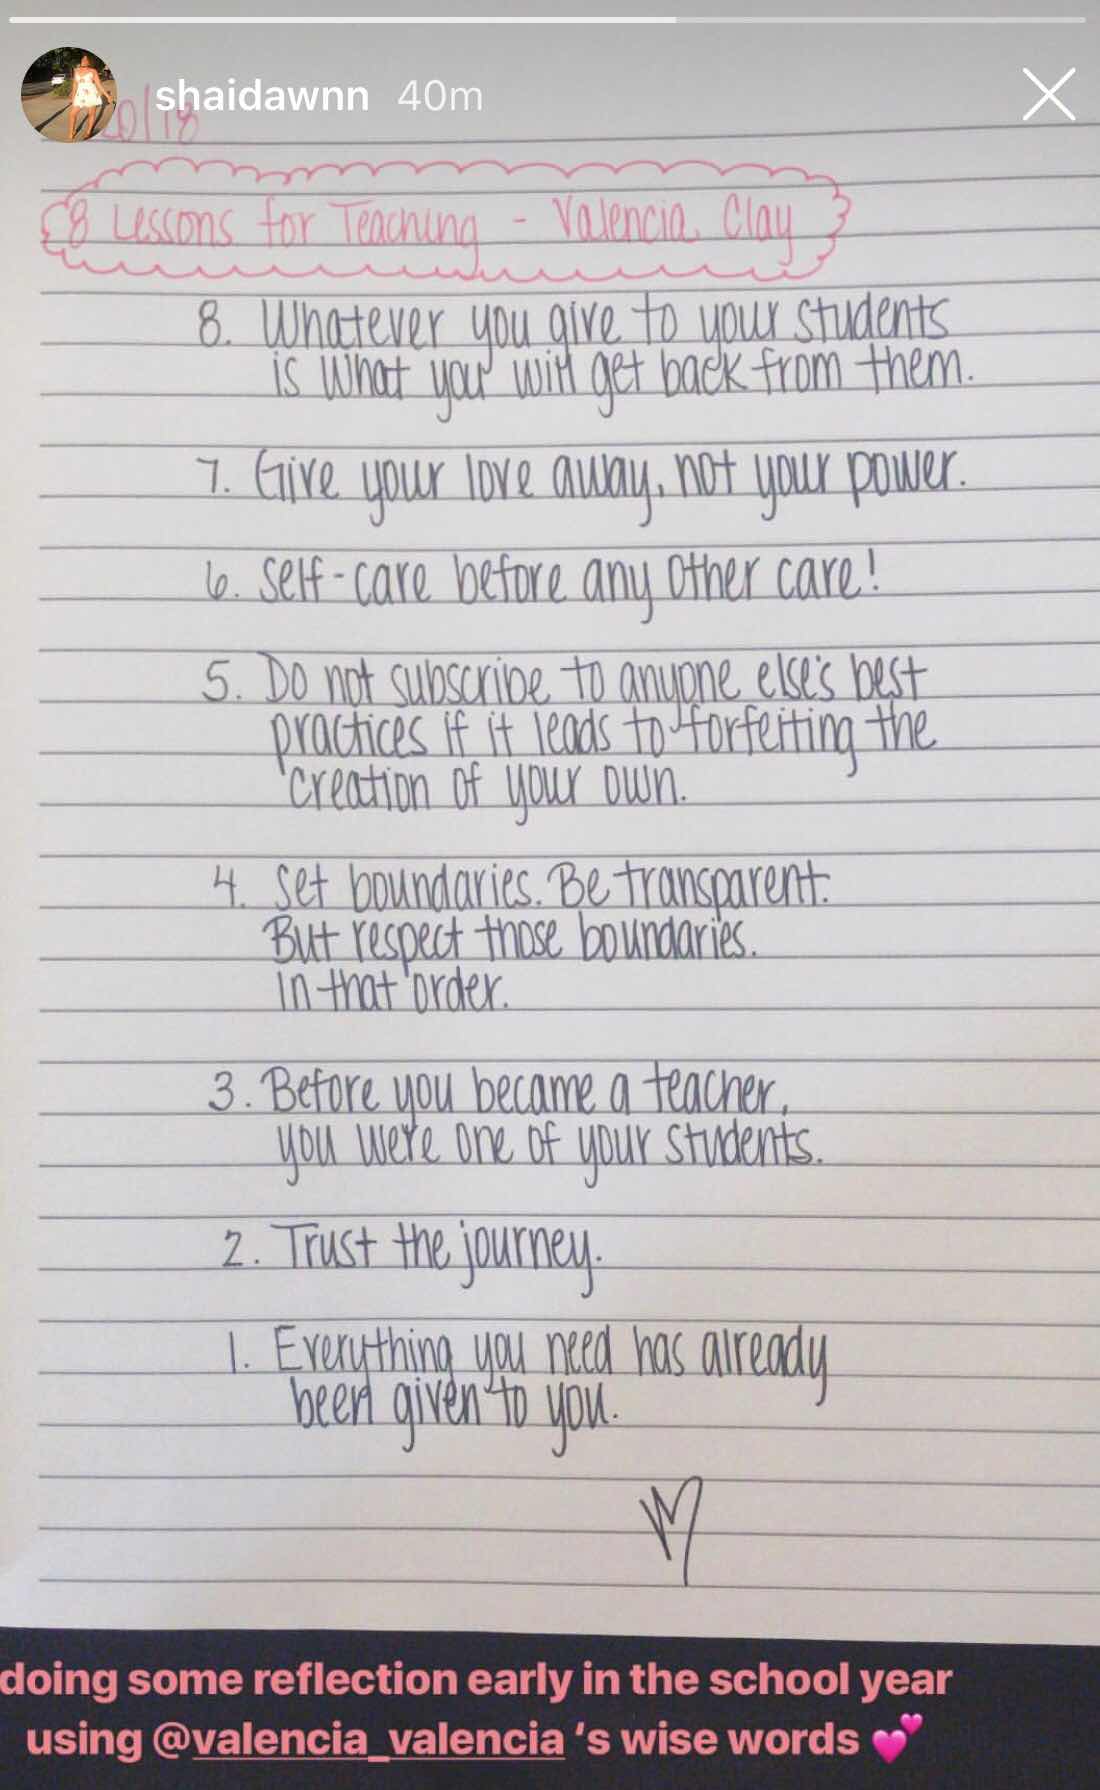 shaidawnn 40m
0/18
8 Lessons for Teaching - Valencia Clay
8. Whatever you give to your students
is what you will get back from them.
7. Give your love away, not your power.
6. Self-care before any other care!
5. Do not subscribe to anyone else's best
practices if it leads to forfeiting the
creation of your own.
4. Set boundaries. Be transparent.
But respect those boundaries.
In that order.
3. Before you became a teacher,
you were one of your students.
2. Trust the journey.
1. Everything you need has already
been given to you.
doing some reflection early in the school year
using @valencia_valencia 's wise words 💕